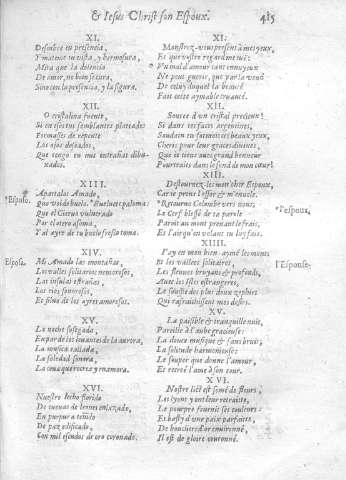 & Iesus Christ son Espoux. 415
XI.
Descubre tu presencia,
Y mateme tu vista, y hermosura,
Mira que la dolencia
De amor, no bien se cura,
Sino con la presencia, y la figura.
XII.
O cristalina fuente,
Si en essos tus semblantes plateados
Formasses de repente
Los ojos desseados,
Que tengo en mis entrañas dibu-
xados.
XIII.
*Esposo.
Apartalos Amado,
Que voi de buelo. *Buelvete paloma:
Que el Ciervo vulnerado
Por el otero asoma,
Y al ayre de tu buelo fresco toma.
XIV.
Esposa.
Mi Amado las montañas,
Los valles solitarios nemorosos,
Las insulas estrañas,
Los rios sonorosos,
El silvo de los ayres amorosos.
XV.
La noche sosegada,
En par de los levantes de la aurora,
La musica callada,
La soledad sonora,
La cena que recrea y enamora.
XVI.
Nuestro lecho florido
De cuevas de leones enlazado,
En purpura teñido
De paz edificado,
Con mil escudos de oro coronado.
XI.
Monstrez-vous present à mes yeux,
Et que vostre regard me tuë:
Un mal d'amour tant ennuyeux
Ne peut guerir, que par la veuë
De celuy duquel la beauté
Fait cette aymable cruauté.
XII.
Source d'un cristal precieux!
Si dans tes faces argentines,
Soudain tu formois ces beaux yeux,
Chers pour leur graces divines,
Que ie tiens avec grand honneur
Pourtraits dans le fond de mon cœur!
XIII.
Destournez-les mon cher Espoux,
Car ie prens l'essor & m'envole.
*l'Espoux.
*Retourne Colombe vers nous:
Le Cerf blessé de ta parole
Paroit au mont prenant le frais,
Et l'air qu'en volant tu luy fais.
XIIII.
l'Espouse.
J'ay en mon bien-aymé les monts
Et les vallées solitaires,
Les fleuves bruyans & profonds,
Avec les Isles estrangeres,
Le souffle des plus doux zephirs
Qui rafraischissent mes desirs.
XV.
La paisible & tranquille nuit,
Pareille à l'aube gracieuse:
La douce musique & sans bruit,
La solitude harmonieuse:
Le souper que donne l'amour,
Et recreé l'ame à son tour.
XVI.
Nostre lict est semé de fleurs,
Les lyons y ont leur retraite,
Le pourpre fournit ses couleurs:
Et basty d'une paix parfaite,
De boucliers d'or environné,
Il est de gloire couronné.